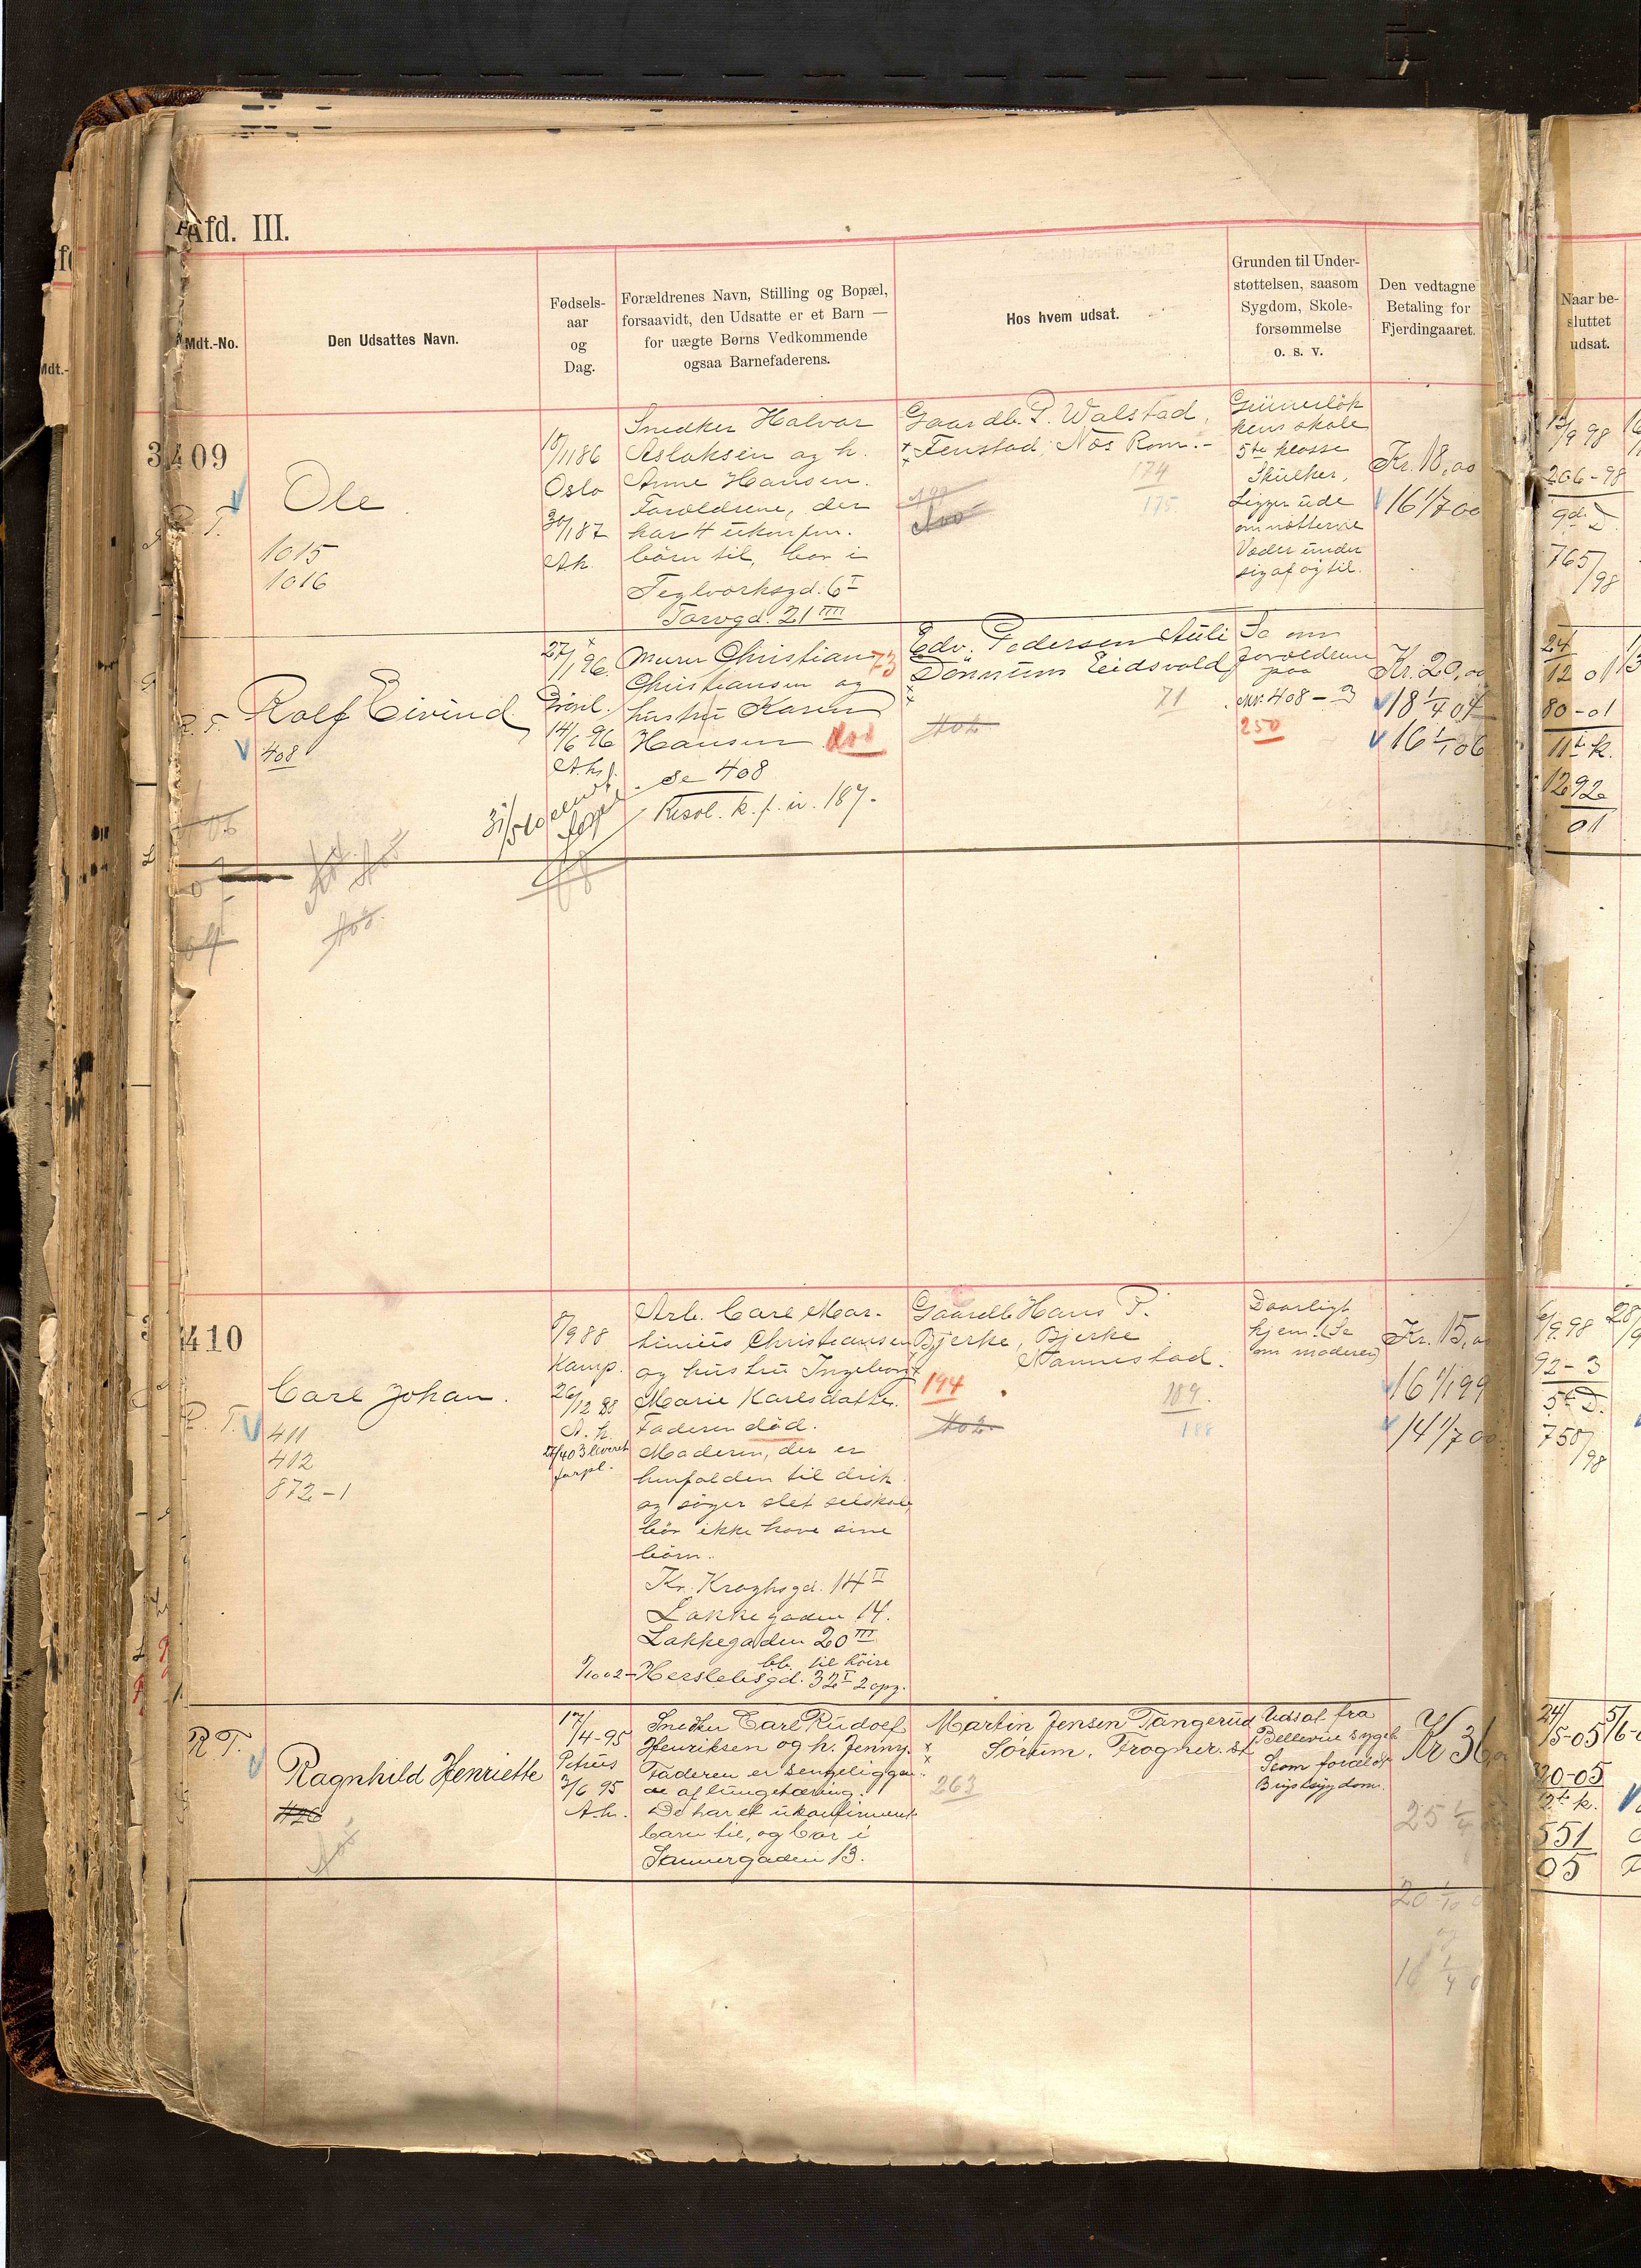 Afd. III.
Mdt.-No.
Den Udsattes Navn.
Fødsels-
aar
og
Dag.
Forældrenes Navn, Stilling og Bopæl,
forsaavidt, den Udsatte er et Barn —
for uægte Børns Vedkommende
ogsaa Barnefaderens.
Hos hvem udsat.
Grunden til Under-
støttelsen, saasom
Sygdom, Skole-
forsømmelse
o. s. v.
Den vedtagne
Betaling for
Fjerdingaaret.
Naar be-
sluttet
udsat.
409
Ole
1015
1016
10/1 86
Oslo
30/1 87
Ak.
Snedker Halvor
Aslaksen og h.
Anne Hansen.
Forældrene, der
har 4 ukonfm.
børn til, bor i
Teglverksgd. 6 I
Torvgd. 21 IIII
Gaardb. P. Walstad,
Fenstad, Nes Rom.-
174
175
Grünerløk
kens skole
5te klasse
Skulker,
Ligger ude
om nætterne
Væder under
sig af og til.
Kr. 18,00
16 1/7 00
13/9 98
206-98
9de D.
765/98
R. T.
Rolf Eivind
408
27/1 96.
14/6 96
A. k.
Murer Christian
Christiansen og
hustru Karen
Hansen død
73
se 408
Resol. k. f. n. 187.
Edv. Pedersen Auli
Dønnum Eidsvold
71
Se om
forældrene
paa
nr. 408-3
250
Kr. 20,00
18 1/4 04
16 1/1 06
24/12 01
80-01
11te k.
1292/01
410
Carl Johan.
411
412
872-1
9 88
Kamp.
26/12 88
A. k.
27/4 03 leveret
forpl.
Arb. Carl Mar-
tinius Christiansen
og hustru Ingeborg
Marie Karlsdatter.
Faderen død.
Moderen, der er
henfalden til drik
og søger slet selskab,
bør ikke have sine
børn.
Kr. Kroghsgd. 14 II
Lakkegaden 14.
Lakkegaden 20 III
bb. til høire
Herslebsgd. 32 I 2 opg.
Gaardb. Hans P.
Bjerke, Bjerke
Nannestad.
194
189.
188
Daarligt
hjem. (Se
om moderen)
Kr. 15,00
16 1/1 99
14 1/7 00
6/9 98
92-3
5te D.
750/98
R T.
Ragnhild Henriette
17/4-95
Petrus
3/6 95
A. k.
Snedker Carl Rudolf
Henriksen og h. Jenny.
Faderen er sengeliggen-
de af lungetæring.
De har et ukonfirmert
barn til, og bor i
Sannergaden 13.
Martin Jensen Tangerud
Sørum. Frogner. st.
263
Udsat fra
Bellevue sygeh
Som forældre
Brystsygdom.
Kr 36,
25 1/4
20 1/10
16 1/4
24/5-05
20-05
12te k.
551
05